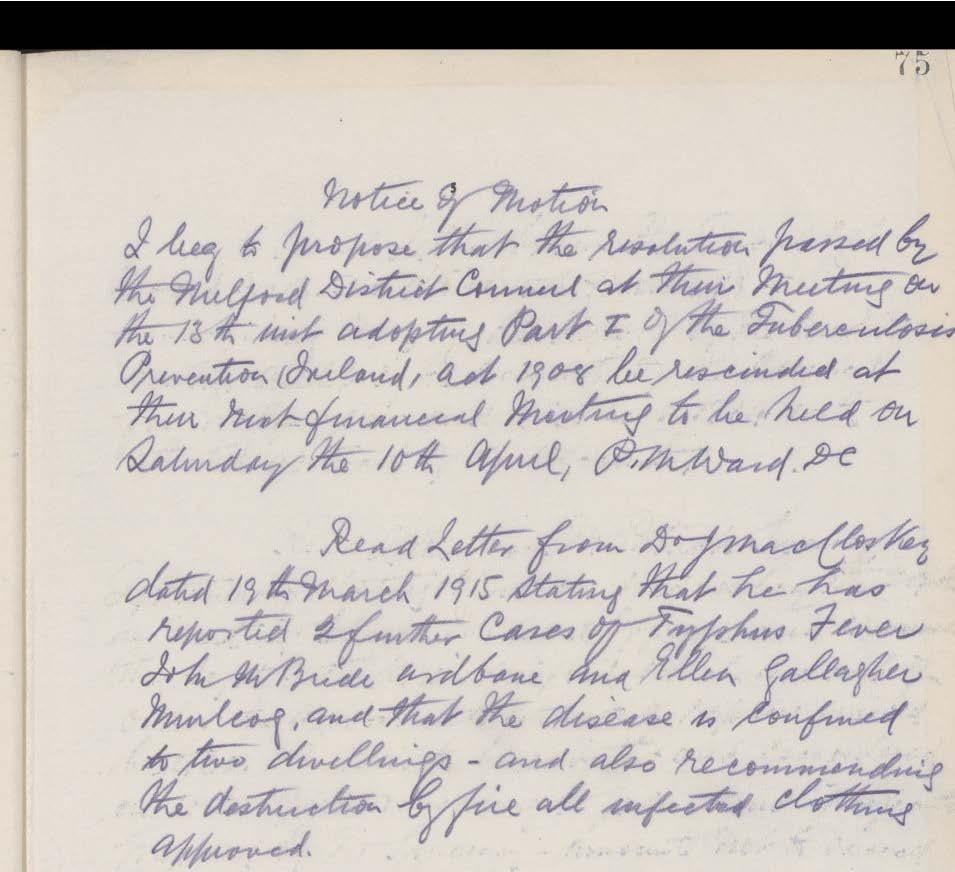 75
Notice of Motion
I beg to propose that the resolution passed by
the Milford District Council at their Meeting on
the 13th inst adopting Part I of the Tuberculosis
Prevention (Ireland, act 1908 be rescinded at
their next financial Meeting to be held on
Saturday the 10th April, P. McWard. DC
Read Letter from Dr J MacCloskey
dated 19th March 1915 stating that he has
reported 2 further Cases of Typhus Fever
John McBride ardbane and Ellen Gallagher
and that the disease is confined
to two dwellings - and also recommending
the destruction by fire all infected clothing
approved.